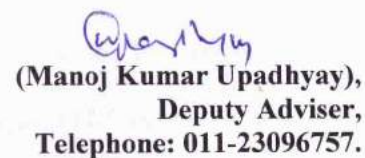 (Manoj Kumar Upadhyay),
Deputy Adviser,
Telephone: 011-23096757.